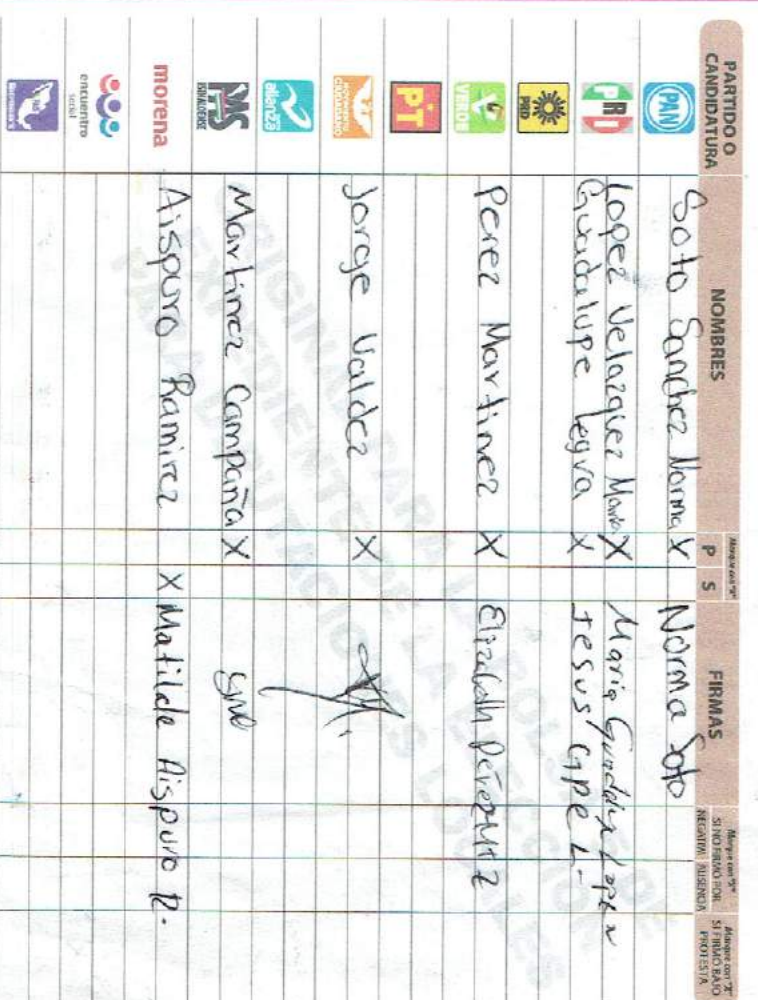 PARTIDO O CANDIDATURA
NOMBRES
Marque con "X"
P S
FIRMAS
Marque con "X" SI NO FIRMÓ POR
NEGATIVA AUSENCIA
Marque con "X" SI FIRMÓ BAJO PROTESTA
PAN Soto Sanchez Norma X Norma Soto
PRI Lopez Velazquez Maria X Maria Guadalupe Lopez V
PRD Guadalupe Leyva X Jesus
VERDE Perez Martinez X Elizabeth Pérez Mtz
PT
MOVIMIENTO CIUDADANO Jorge Valdez X
alianza
PAS SINALOENSE Martinez Campaña X
morena Aispuro Ramirez X Matilde Aispuro R.
encuentro social
ORIGINAL PARA LA BOLSA DE
EXPEDIENTE DE LA ELECCIÓN
PARA DIPUTACIONES LOCALES